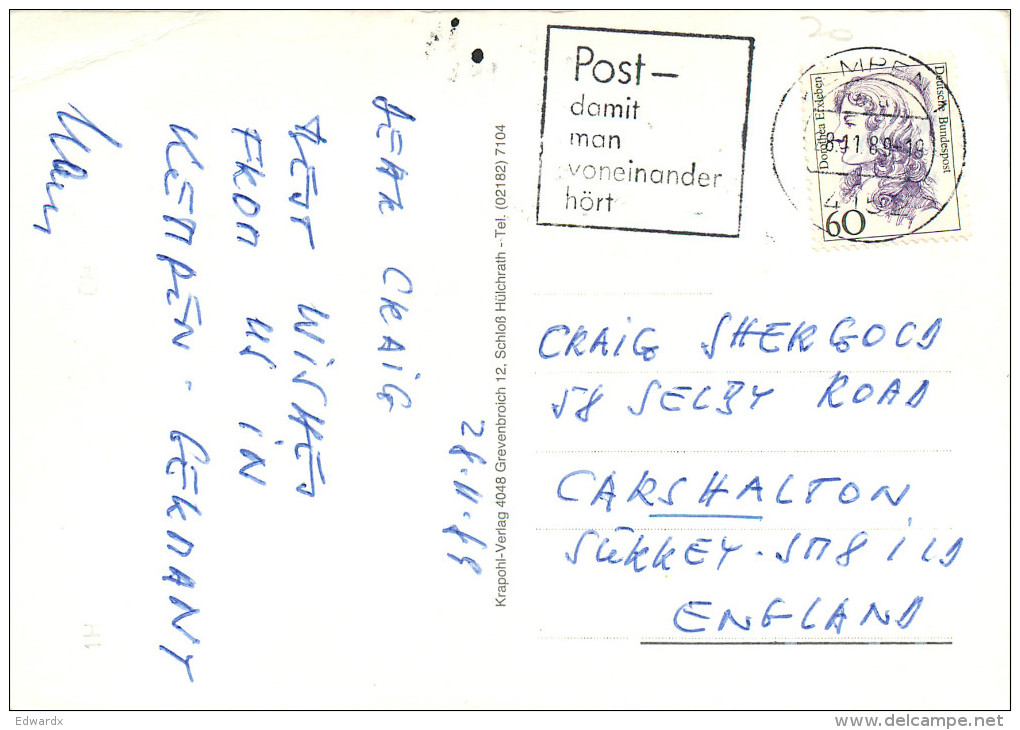 Post–
damit
man
voneinander
hört
Dorothea Erxleben
Deutsche Bundespost
60
20
DEAR CRAIG
BEST WISHES
FROM US IN
KEMPEN - GERMANY
28.11.89
Krapohl-Verlag 4048 Grevenbroich 12, Schloß Hülchrath - Tel. (02182) 7104
CRAIG SHERGOLD
58 SELBY ROAD
CARSHALTON
SURREY - SM8 1LD
ENGLAND
Edwardx
www.delcampe.net